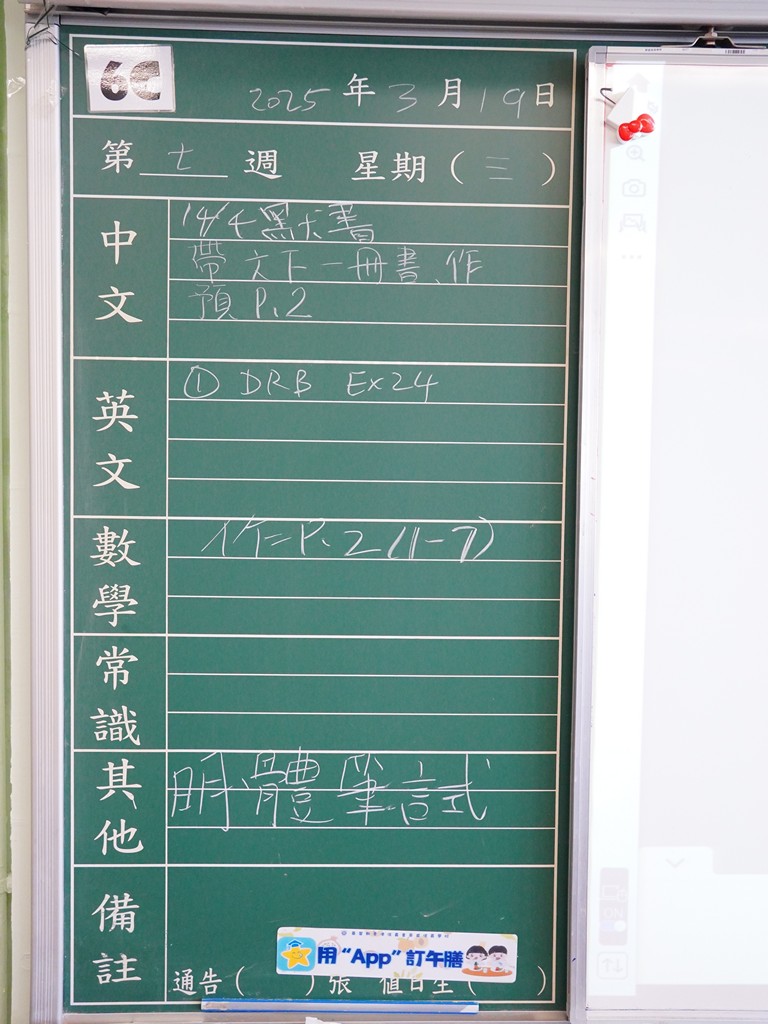 6C
2025 年 3 月 19 日
第 七 週 星期 ( 三 )
中文
14/4 默書
帶六下一冊書、作
預 P.2
英文
① DRB Ex24
數學
作= P.2 (1-7)
常識
其他
明 體 筆試
備註
用“App”訂午膳
通告 ( ) 張 值日生 ( )